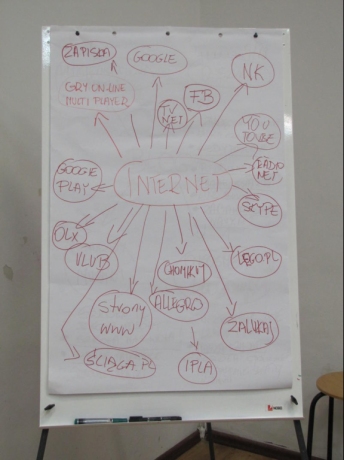 ZAPISKA
GOOGLE
NK
GRY ON-LINE
MULTI PLAYER
FB
TV
NET
YOU
TUBE
RADIO
NET
INTERNET
GOOGLE
PLAY
SKYPE
OLX
LEGO.PL
CHOMIKUJ
STRONY
WWW
ALLEGRO
ZALUKAJ
ŚCIĄGA.PL
IPLA